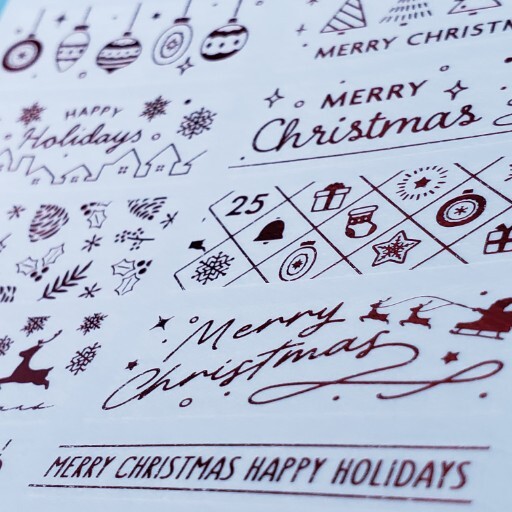 MERRY CHRISTM
HAPPY
Holidays
MERRY
Christmas
25
Merry
Christmas
MERRY CHRISTMAS HAPPY HOLIDAYS